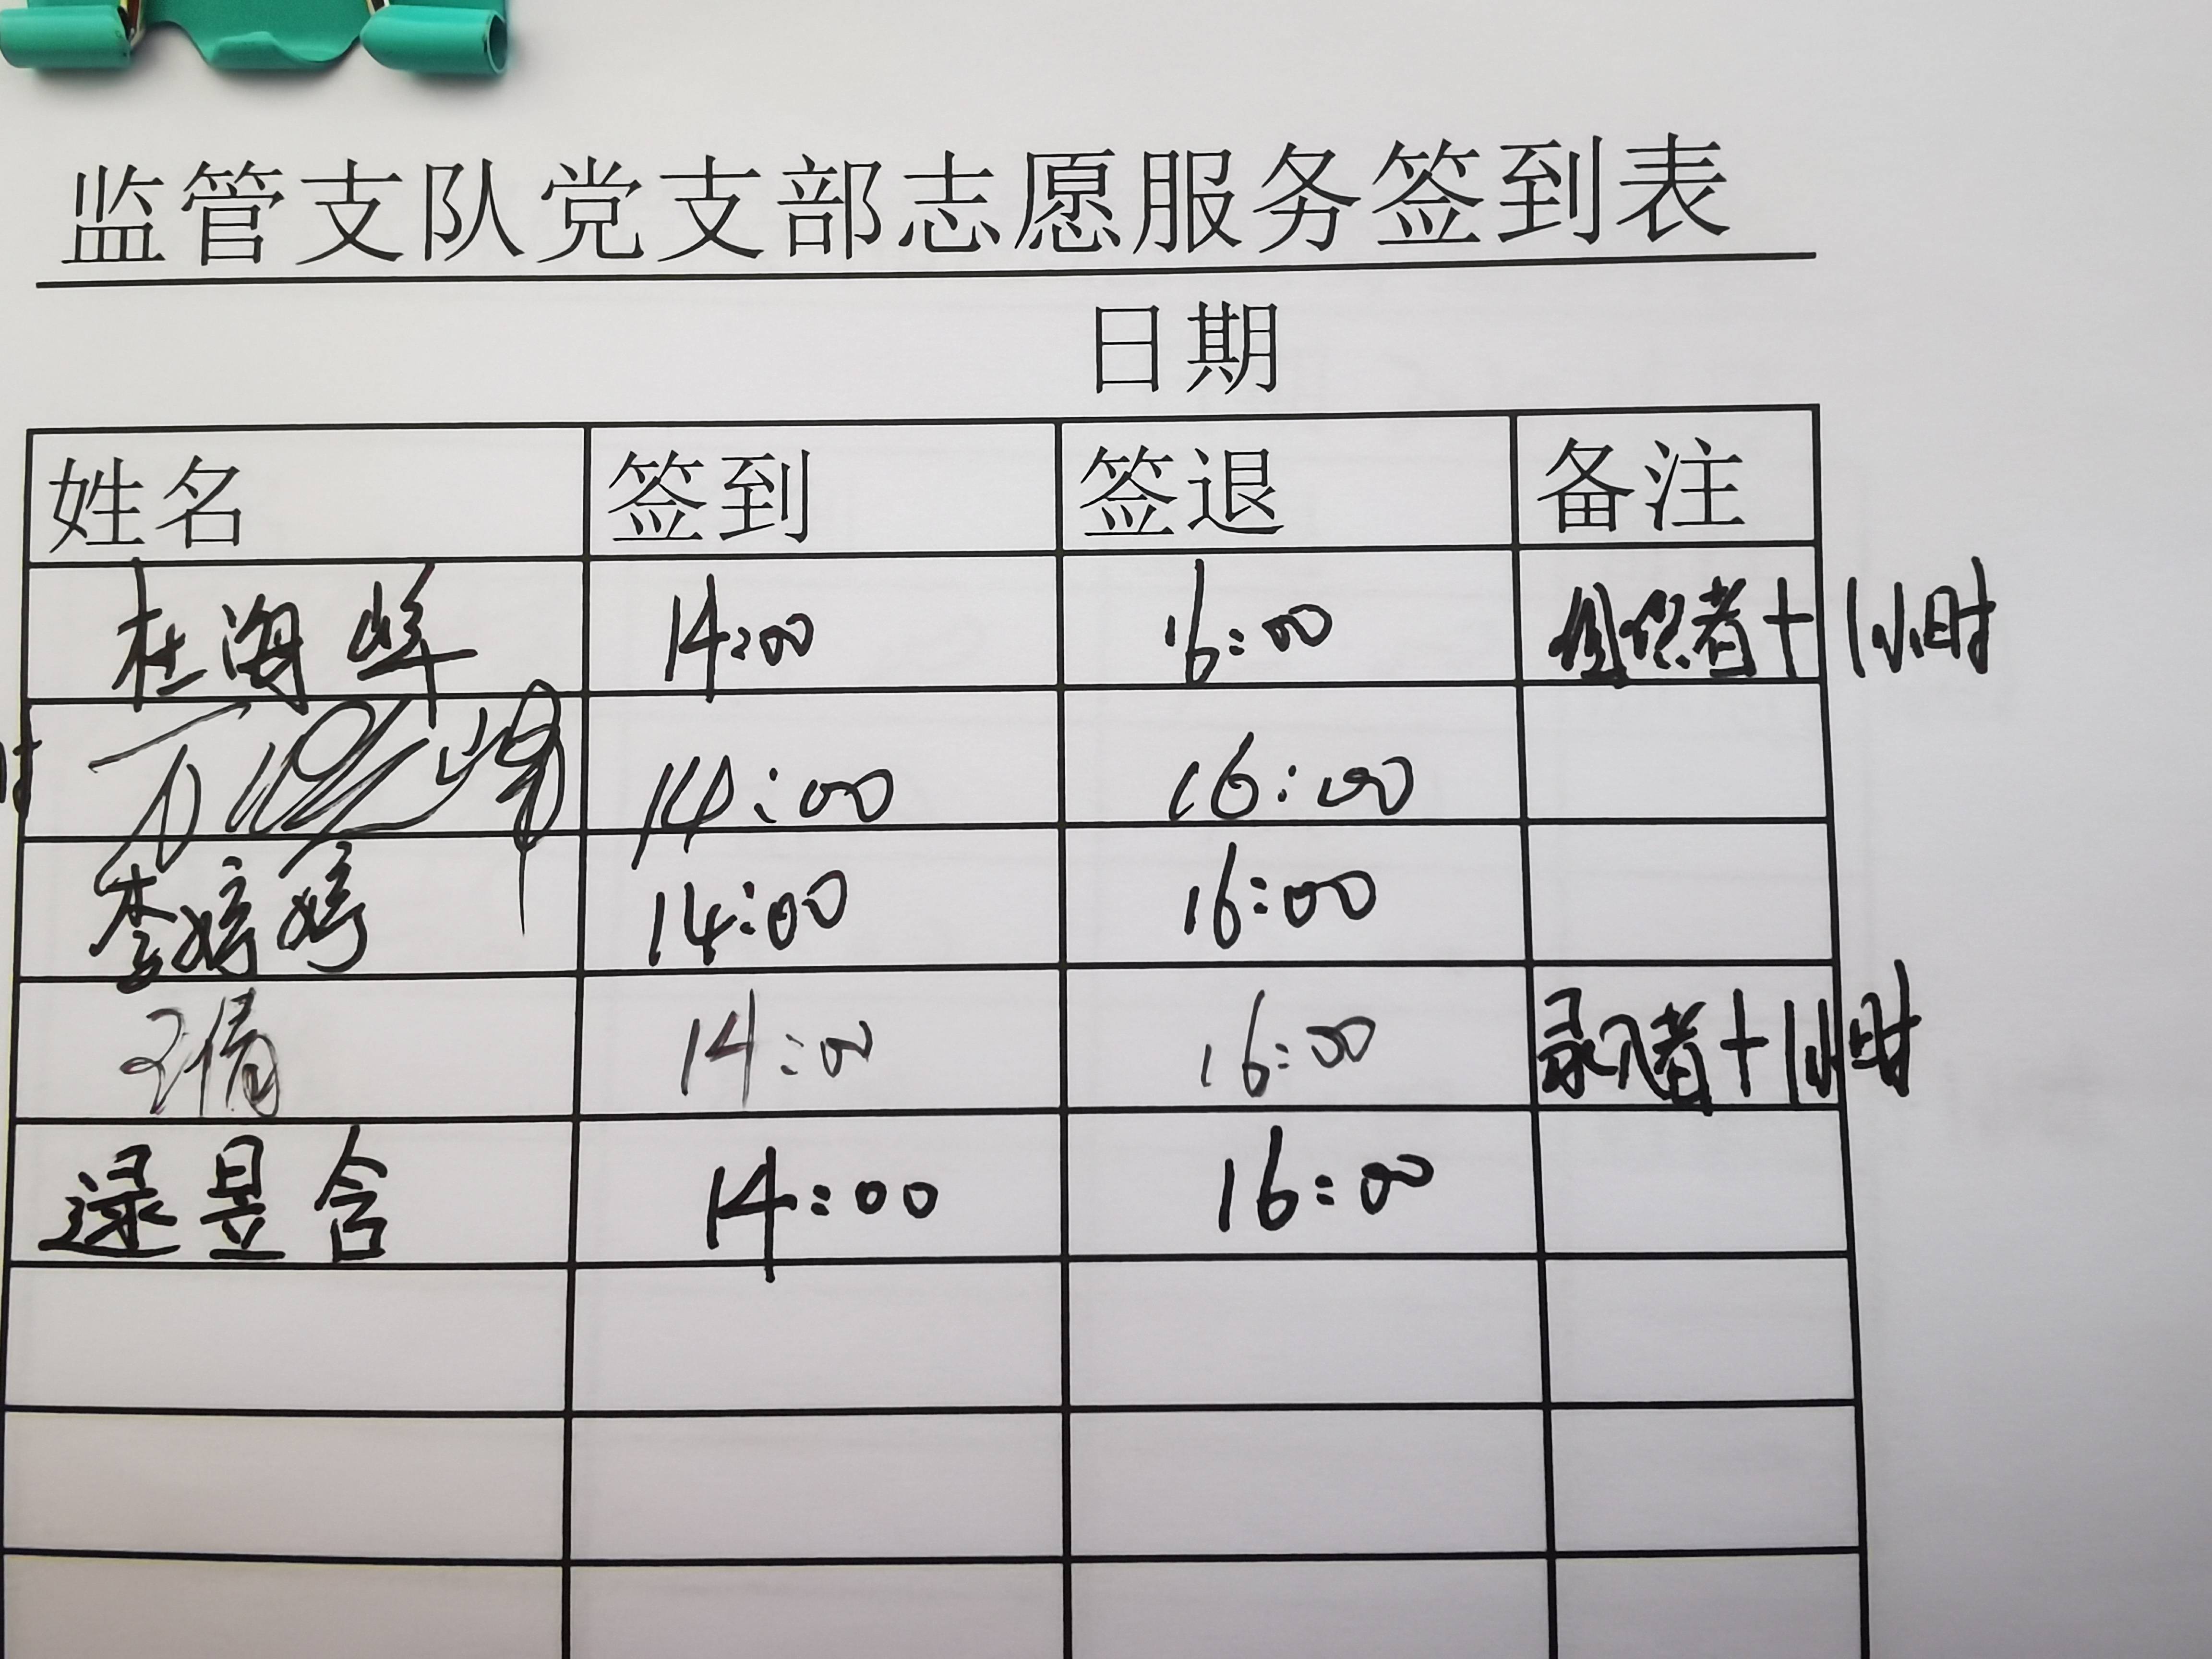 监管支队党支部志愿服务签到表
日期
姓名 签到 签退 备注
杜海峰 14:00 16:00 组织者+1小时
14:00 16:00
李婷婷 14:00 16:00
王倩 14:00 16:00 录入者+1小时
逯昱含 14:00 16:00